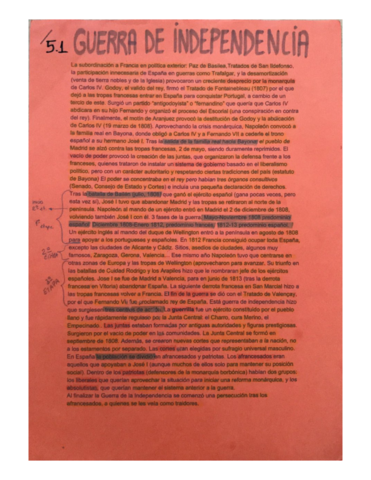 5.1 GUERRA DE INDEPENDENCIA
La subordinación a Francia en política exterior: Paz de Basilea, Tratados de San Ildefonso,
la participación innecesaria de España en guerras como Trafalgar, y la desamortización
(venta de tierra nobles y de la Iglesia) provocaron un creciente desprecio por la monarquía
de Carlos IV. Godoy, el valido del rey, firmó el Tratado de Fontainebleau (1807) por el que
dejó a las tropas francesas entrar en España para conquistar Portugal, a cambio de un
tercio de este. Surgió un partido "antigodoyista" o "fernandino" que quería que Carlos IV
abdicara en su hijo Fernando y organizó el proceso del Escorial (una conspiración en contra
del rey). Finalmente, el motín de Aranjuez provocó la destitución de Godoy y la abdicación
de Carlos IV (19 marzo de 1808). Aprovechando la crisis monárquica, Napoleón convocó a
la familia real en Bayona, donde obligó a Carlos IV y a Fernando VII a cederle el trono
español a su hermano José I. Tras la salida de la familia real hacia Bayona el pueblo de
Madrid se alzó contra las tropas francesas, 2 de mayo, siendo duramente reprimidos. El
vacío de poder provocó la creación de las juntas, que organizaron la defensa frente a los
franceses, quienes trataron de instalar un sistema de gobierno basado en el liberalismo
político, pero con un carácter autoritario y respetando ciertas tradiciones del país (estatuto
de Bayona) El poder se concentraba en el rey pero habían tres órganos consultivos
(Senado, Consejo de Estado y Cortes) e incluía una pequeña declaración de derechos.
Tras la batalla de Bailén (julio, 1808) que ganó el ejército español (gana pocas veces, pero
esta vez sí), José I tuvo que abandonar Madrid y las tropas se retiraron al norte de la
península. Napoleón al mando de un ejército entró en Madrid el 2 de diciembre de 1808,
volviendo también José I con él. 3 fases de la guerra: Mayo-Noviembre 1808 predominio
español, Diciembre 1808-Enero 1812, predominio francés; 1812-13 predominio español.
Un ejército inglés al mando del duque de Wellington entró a la península en agosto de 1808
para apoyar a los portugueses y españoles. En 1812 Francia consiguió ocupar toda España,
excepto las ciudades de Alicante y Cádiz. Sitios, asedios de ciudades, algunos muy
famosos, Zaragoza, Gerona, Valencia… Ese mismo año Napoleón tuvo que centrarse en
otras zonas de Europa y las tropas de Wellington (aprovecharon para avanzar. Su triunfo en
las batallas de Ciudad Rodrigo y los Arapiles hizo que le nombraran jefe de los ejércitos
españoles. José I se fue de Madrid a Valencia, para en junio de 1813 (tras la derrota
francesa en Vitoria) abandonar España. La siguiente derrota francesa en San Marcial hizo a
las tropas francesas volver a Francia. El fin de la guerra se dió con el Tratado de Valençay,
por el que Fernando VII fue proclamado rey de España. Esta guerra de Independencia hizo
que surgiesen
La guerrilla fue un ejército constituido por el pueblo
llano y fue rápidamente regulado por la Junta Central, el Charro, cura Merino, el
Empecinado. Las juntas estaban formadas por antiguas autoridades y figuras prestigiosas.
Surgieron por el vacío de poder en las comunidades. La Junta Central se formó en
septiembre de 1808. Además, se crearon nuevas cortes que representaban a la nación, no
a los estamentos por separado. Las cortes eran elegidas por sufragio universal masculino.
En España la población se dividió en afrancesados y patriotas. Los afrancesados eran
aquellos que apoyaban a José I (aunque muchos de ellos solo para mantener su posición
social). Dentro de los patriotas (defensores de la monarquía borbónica) habían dos grupos:
los liberales que querían aprovechar la situación para iniciar una reforma monárquica, y los
absolutistas, que querían mantener el sistema anterior a la guerra.
Al finalizar la Guerra de la Independencia se comenzó una persecución tras los
afrancesados, a quienes se les veía como traidores.